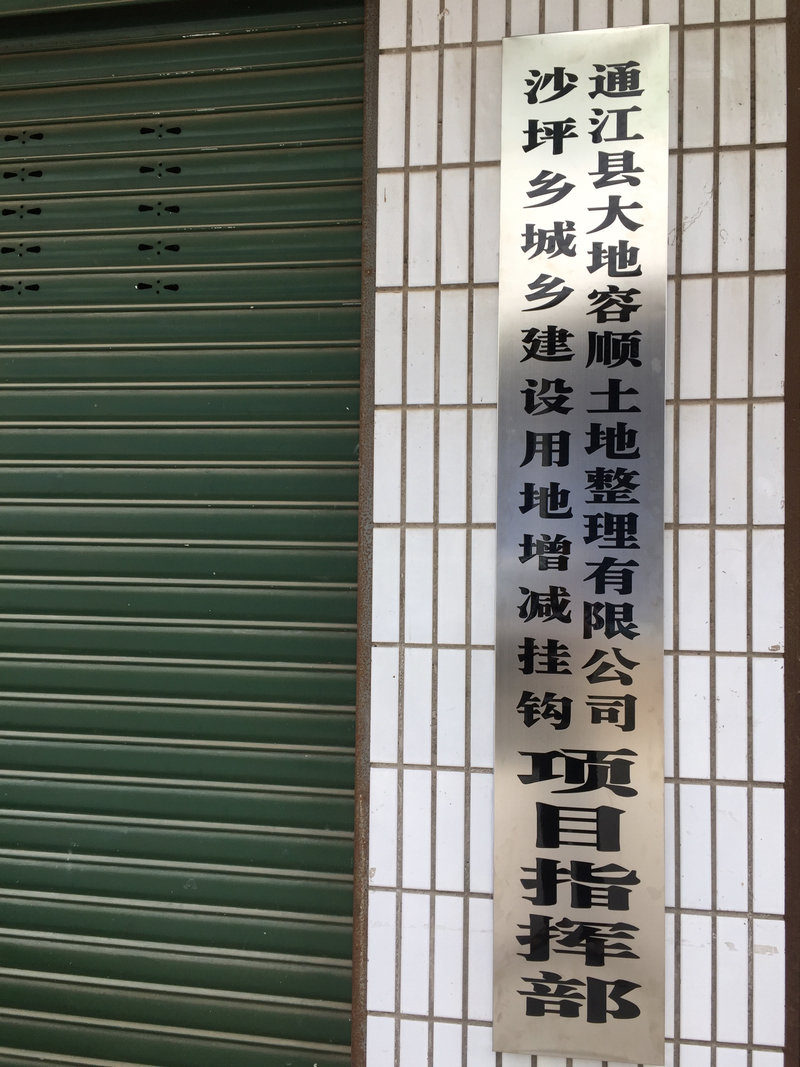 通江县大地容顺土地整理有限公司
沙坪乡城乡建设用地增减挂钩
项目指挥部